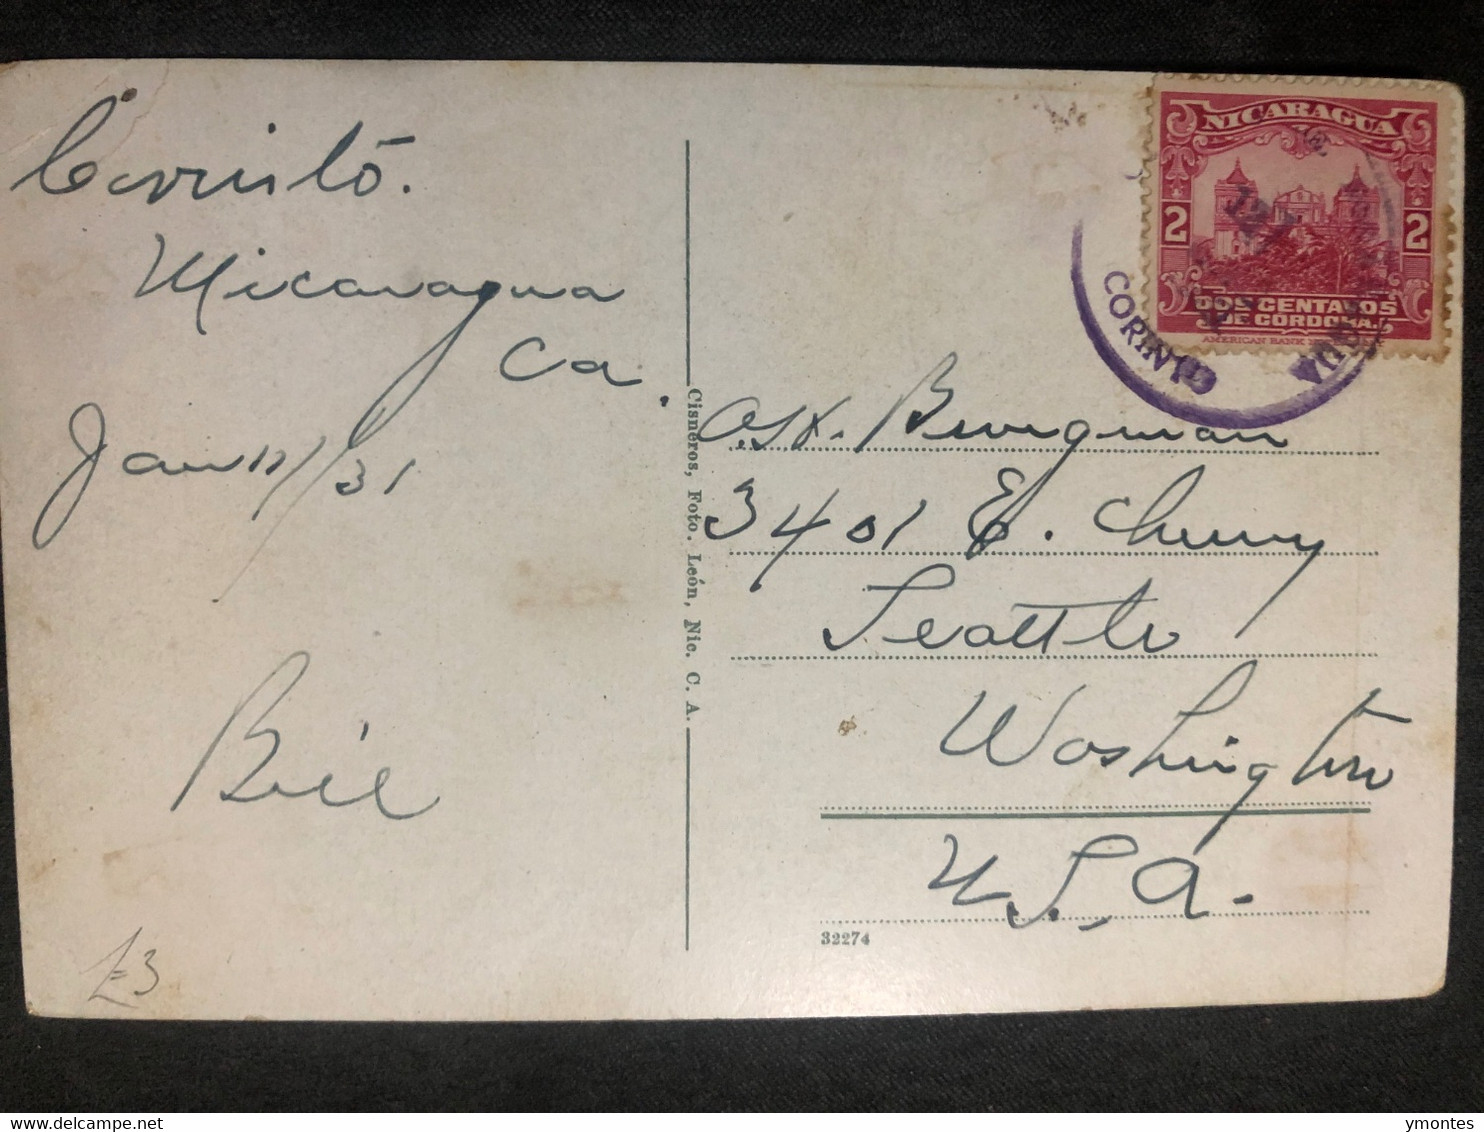 Corinto.
Nicaragua
Ca.
Jan 11/31
Bill
£3
Cisneros, Foto. León, Nic. C. A.
NICARAGUA
2 2
DOS CENTAVOS
DE CORDOBA.
AMERICAN BANK
CORINTO
3401 E. Cherry
Seattle
Washington
U.S.A.
32274
ymontes